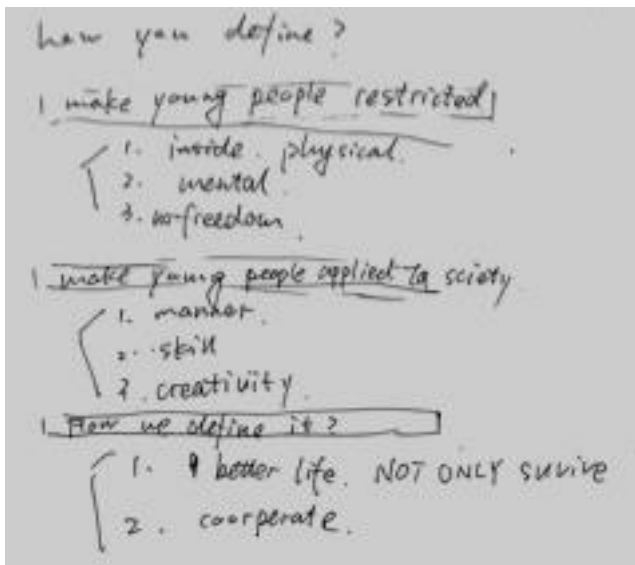 how you define?
1 make young people restricted
1. inside. physical.
2. mental.
3. no-freedom.
1 make young people applied to sciety
1. manner.
2. skill
3. creativity.
1 How we define it?
1. better life. NOT ONLY survive
2. coorperate.